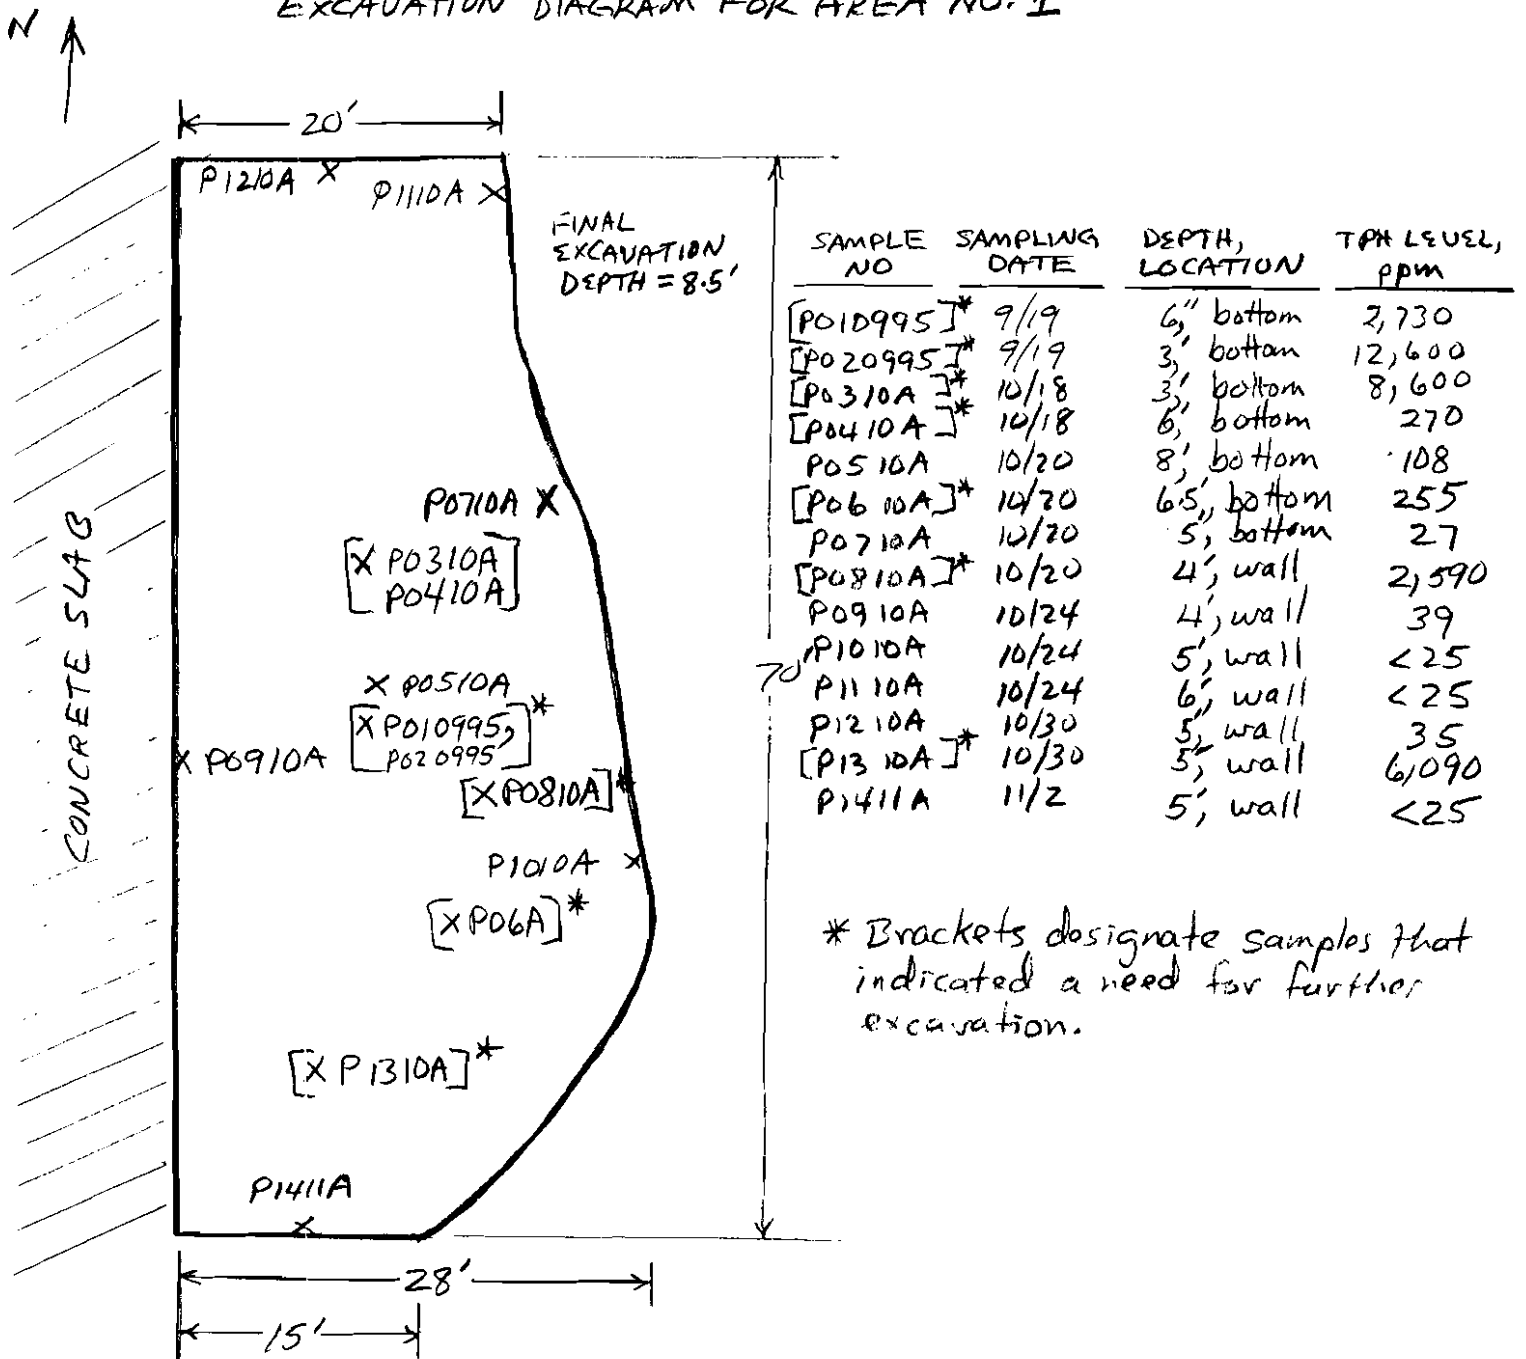 EXCAVATION DIAGRAM FOR AREA NO. 1
N
20'
P1210A X
P1110A X
FINAL
EXCAVATION
DEPTH = 8.5'
CONCRETE SLAB
P0710A X
[X P0310A
P0410A]
X P0510A
[X P010995,
P020995]*
X P0910A
[X P0810A]*
P1010A X
[X P06A]*
[X P1310A]*
P1411A
X
70'
28'
15'
SAMPLE NO SAMPLING DATE DEPTH, LOCATION TPH LEVEL, ppm
[P010995]* 9/19 6", bottom 2,730
[P020995]* 9/19 3', bottom 12,600
[P0310A]* 10/18 3', bottom 8,600
[P0410A]* 10/18 6', bottom 270
P0510A 10/20 8', bottom 108
[P0610A]* 10/20 6.5', bottom 255
P0710A 10/20 5', bottom 27
[P0810A]* 10/20 4', wall 2,590
P0910A 10/24 4', wall 39
P1010A 10/24 5', wall <25
P1110A 10/24 6', wall <25
P1210A 10/30 5', wall 35
[P1310A]* 10/30 5', wall 6,090
P1411A 11/2 5', wall <25
* Brackets designate samples that
indicated a need for further
excavation.